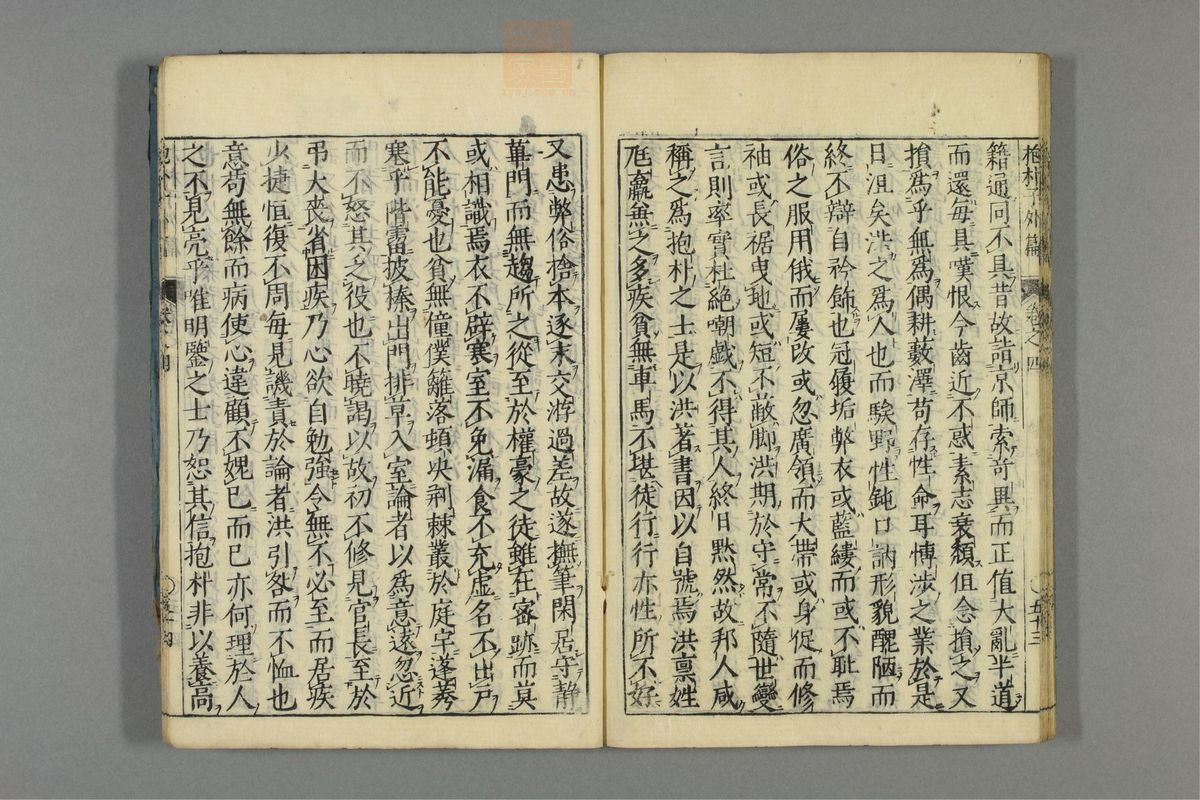 抱朴子外篇 卷之四 五十三
籍通同不具昔故詣京師索竒異而正值大亂半道
而還每具嘆恨今齒近不惑素志衰頹但念損之又
損爲乎無爲偶耕藪澤苟存性命耳博涉之業於是
日沮矣洪之爲人也而騃野性鈍口訥形貌醜陋而
終不辯自矜飾也冠履垢弊衣或藍縷而或不耻焉
俗之服用俄而屢改或忽廣領而大帶或身促而修
袖或長裾曳地或短不蔽脚洪期於守常不隨世變
言則率實杜絶嘲戯不得其人終日黙然故邦人咸
稱之爲抱朴之士是以洪著書因以自號焉洪禀姓
尫羸兼之多疾貧無車馬不堪徒行行亦性所不好
又患弊俗捨本逐末交游過差故遂撫筆閑居守静
蓽門而無趨所之從至於權豪之徒雖在宻跡而莫
或相識焉衣不辟寒室不免漏食不充虚名不出戸
不能憂也貧無僮僕籬落頓决荆棘叢於庭宇蓬莠
塞乎階霤披榛出門排草入室論者以爲意遠忽近
而不怒其乏役也不曉謁以故初不修見官長至於
弔大喪省困疾乃心欲自勉強令無不必至而居疾
少捷恒復不周每見譏責於論者洪引咎而不恤也
意苟無餘而病使心違顧不媿已而已亦何理於人
之不見亮乎唯明鑒之士乃恕其信抱朴非以養高
zysj.com.cn